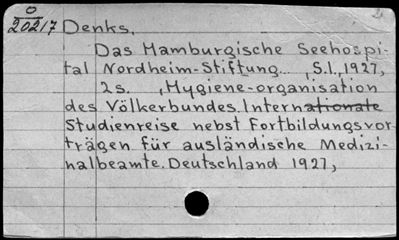 O
20217 Denks.
2
Das Hamburgische Seehospi-
tal Nordheim-Stiftung... , S.l., 1927,
2s. , Hygiene-organisation
des Völkerbundes. Internationate
Studienreise nebst Fortbildungsvor-
trägen für ausländische Medizi-
nalbeamte. Deutschland 1927,